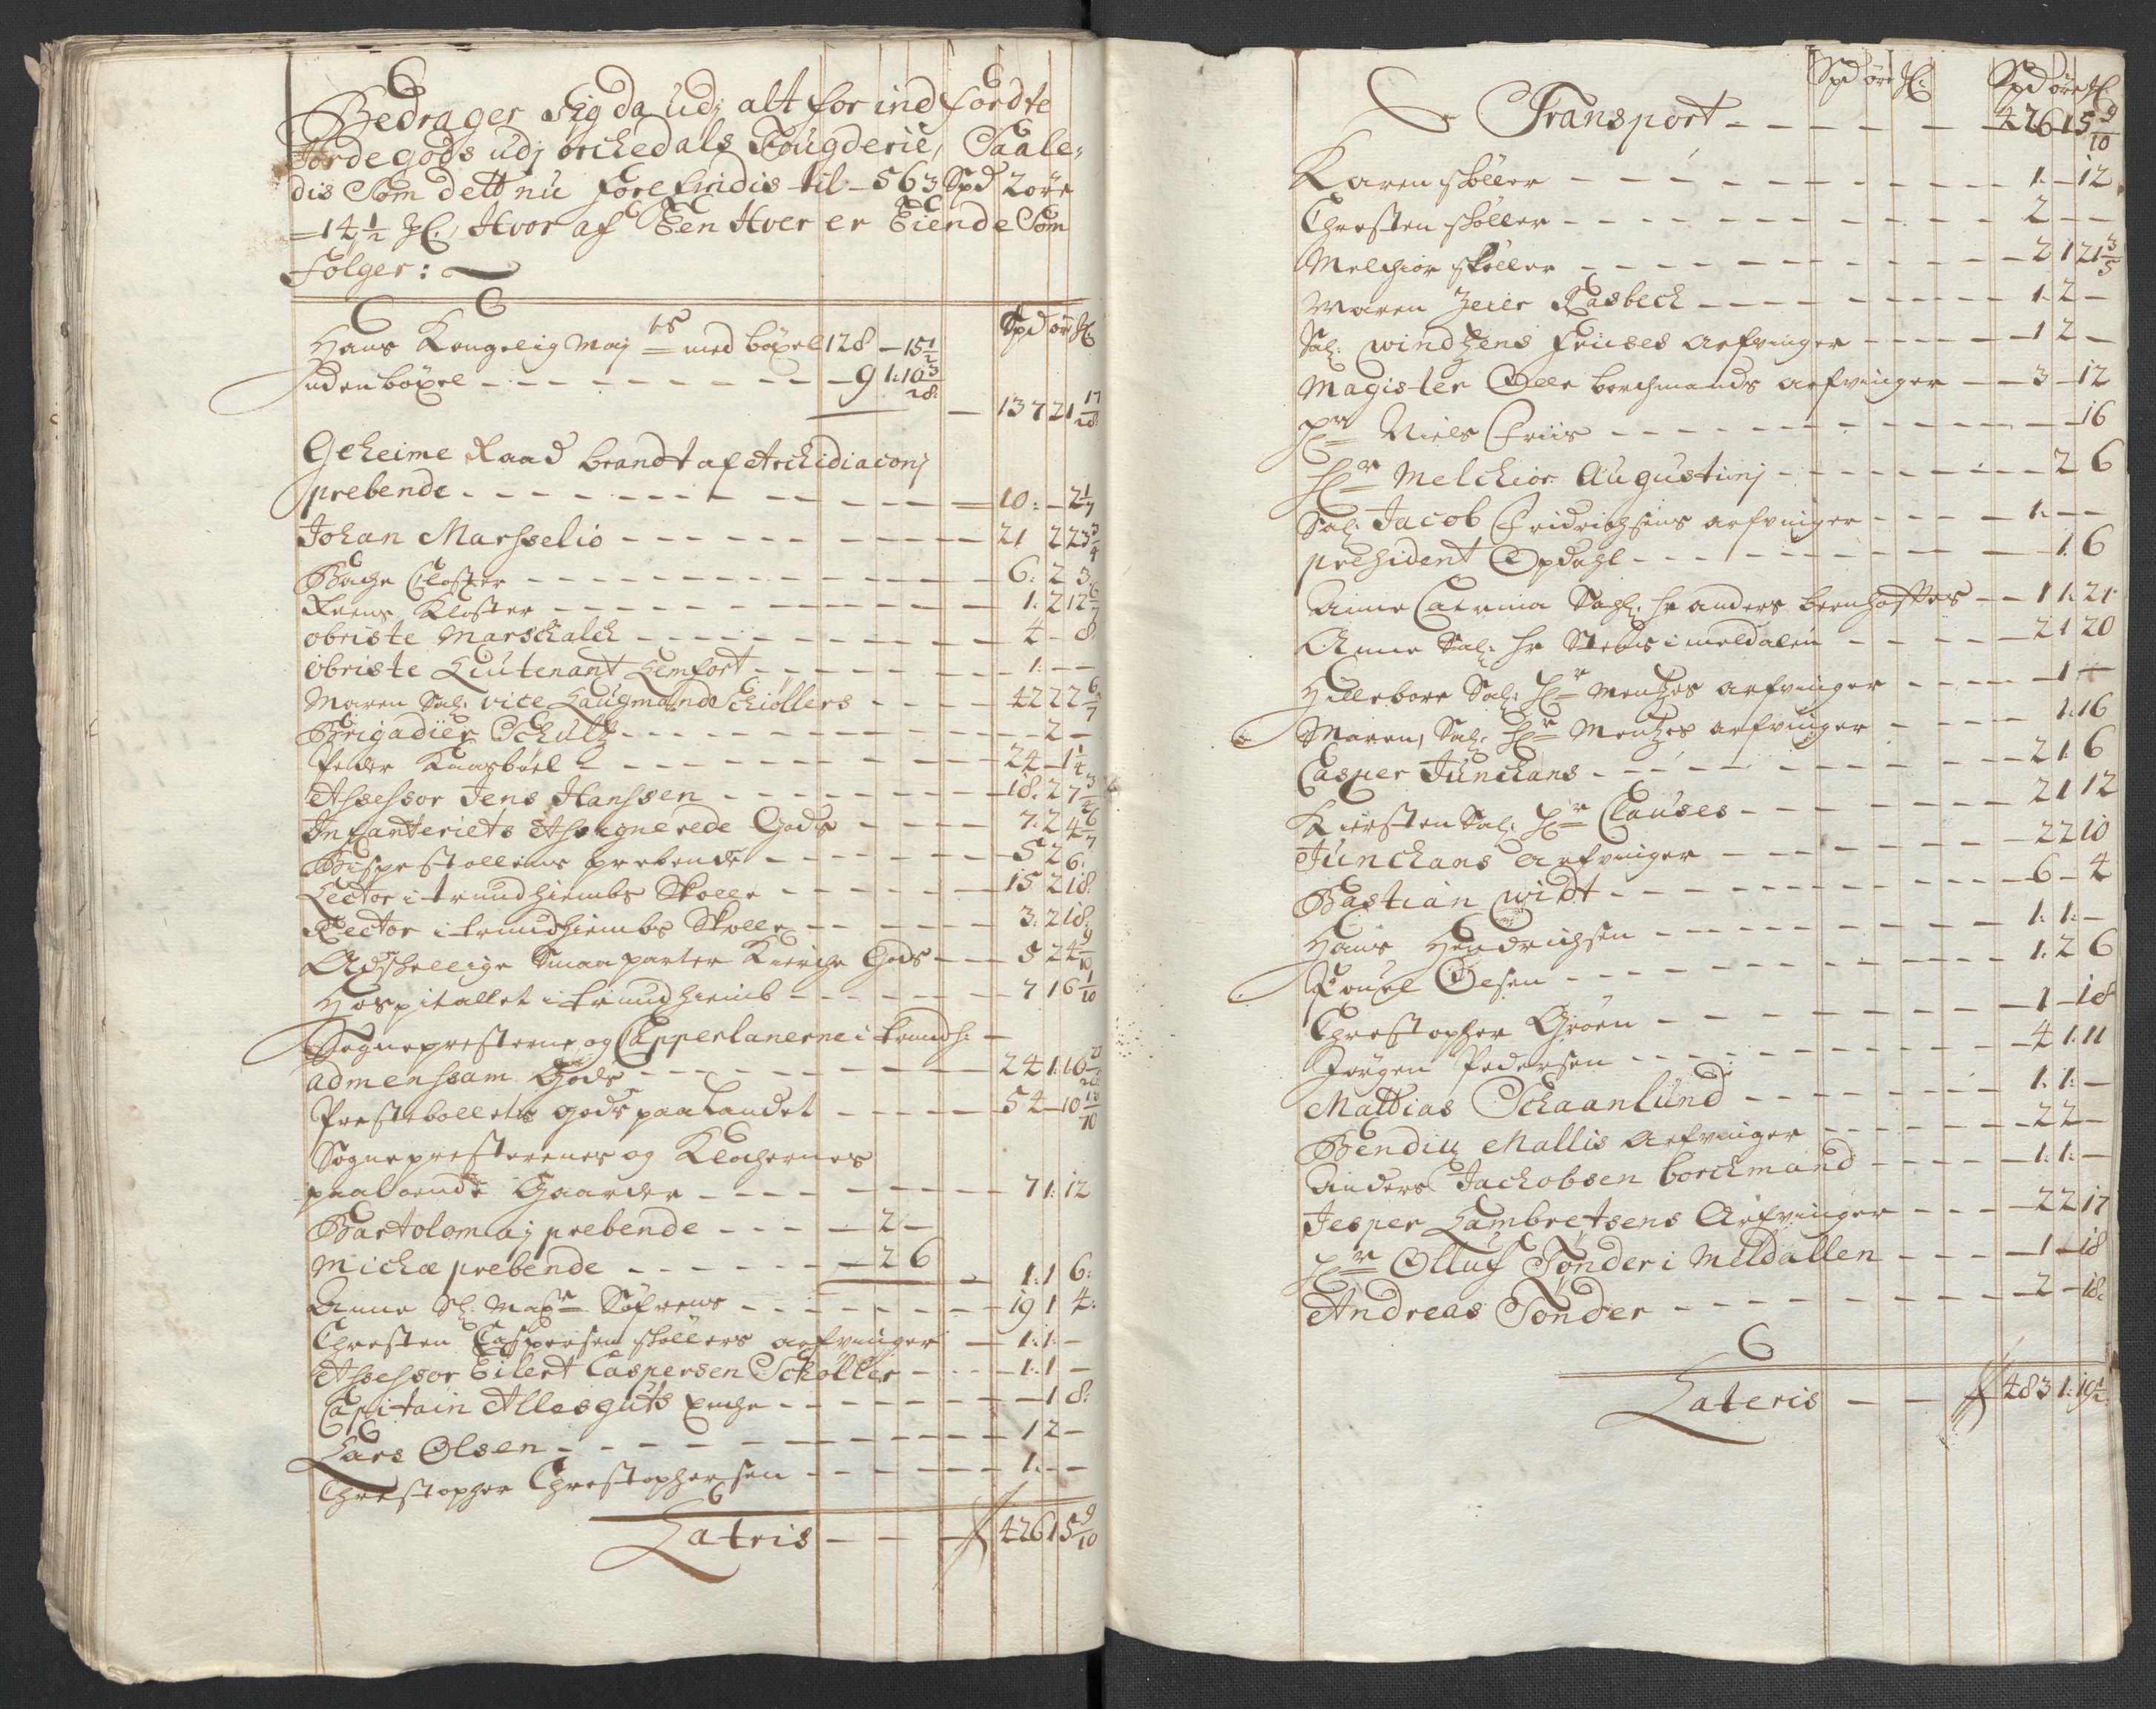 Bedrager Sig da udj alt for ind førdte
Jordegods udj Orchedals Fougderie, Saale,
dis Som dett nu forefindis til - 563 Spd 2 øre
- 14 1/2 ₰, Hvor af Een Hver er Eiende Som
Følger:
Spd ør ₰
Hans Kongelig May ts med böxel 128 - 15 1/2
uden böxel - 9 1: 10 3/28
- 137 2 1 17/28
Geheime Raad brandt af Archidiaconj
prebende - 10: - 2 1/7
Johan Marsselio - 21 2 23 3/4
Bache Closter - 6: 2 3:
Reens Kloster - 1: 2 12 6/7
obriste Marschalck - 4 - 8
öbriste Lieutenant Lemfort - 1: - -
Maren Sal: vice Laugmands Schiöllers - 42 2 2 6/7
Brigadier Schultz - - 2 -
Peder Kaasböel - 24 - 1 1/4
Assessor Jens Hanssen - 18: 2 7 3/4
Infanteriets Assignerede Gods - 7: 2 4 6/7
Bispestollens prebende - 5 2 6:
Lector i trundhiembs Skolle - 15 2 18:
Rector i trundhiembs Skolle - 3: 2 18:
Adskellige Smaaparter Kierche Gods - 5 2 4 9/10
Hospitallet i trundhiemb - 7 1 6 1/10
Sognepresterne og Cappellanerne i trundh: -
admenssam Gods - 24 1: 16
Prestebollets gods paa Landet - 54 - 10
Sognepresternes og Klockernes
paaboende Gaarder - 7 1: 12
Bartolomaj prebende - 2 -
Michæ prebende - 2 6
- 1: 1 6:
Anne Sl: Mag r Söfrens - 19 1 4:
Chresten Caspersen skøllers arfvinger - 1: 1: -
Assessor Eilert Caspersen Schøller - 1: 1 -
Capitain Allesguts Enche - - 1 8:
Lars Olsen - 1 2 -
Christopher Christophersen - 1: - -
Latris - 426 1 5 9/10
Spd øre ₰: Spd øre ₰
Transport - 426 1 5 9/10
Karen skøller - 1: - 12
Chresten skøller - 2 - -
Melchior skøller - 2 1 21 3/5
Maren Jeier Rasbech - 1: 2 -
Sal: Windtzens Friises Arfvinger - 1 2 -
Magister Olle borchmands arfvinger - 3 - 12
H r Niels Friis - - - 16
H r Melchior Augustinj - - 2 6
Sal: Jacob Fridrichsens arfvinger - 1: - -
president Opdahl - - 1: 6
Anne Catrina Sahl: hr anders beenhoffts - 1 1: 21
Anne Sal: hr Stens i meldalen - 2 1 20
Hillebore Sal: H r Mentzes arfvinger - - 1 -
Maren, Sal: H r Mentzes arfvinger - - 1: 16
Casper Junchans - 2 1 6
Kiersten Sal: H r Clauses - 2 1 12
Junchans Arfvinger - 2 2 10
Bastian Widt - 6 - 4
Hans Hendrichsen - 1: 1: -
Pouel Olsen - 1: 2 6
Christopher Groen - 1 - 18
Jørgen Pedersen - 4 1: 11
Mattias Schaanlund - 1: 1: -
Bendix Mallis Arfvinger - 2 2 -
Anders Jachobsen borchmand - 1: 1: -
Jesper Lambretsens Arfvinger - 2 2 17
H r Olluf Tønder i Meldallen - 1 - 18
Andreas Tønder - 2 - 18:
Lateris - 483 1: 19 1/2